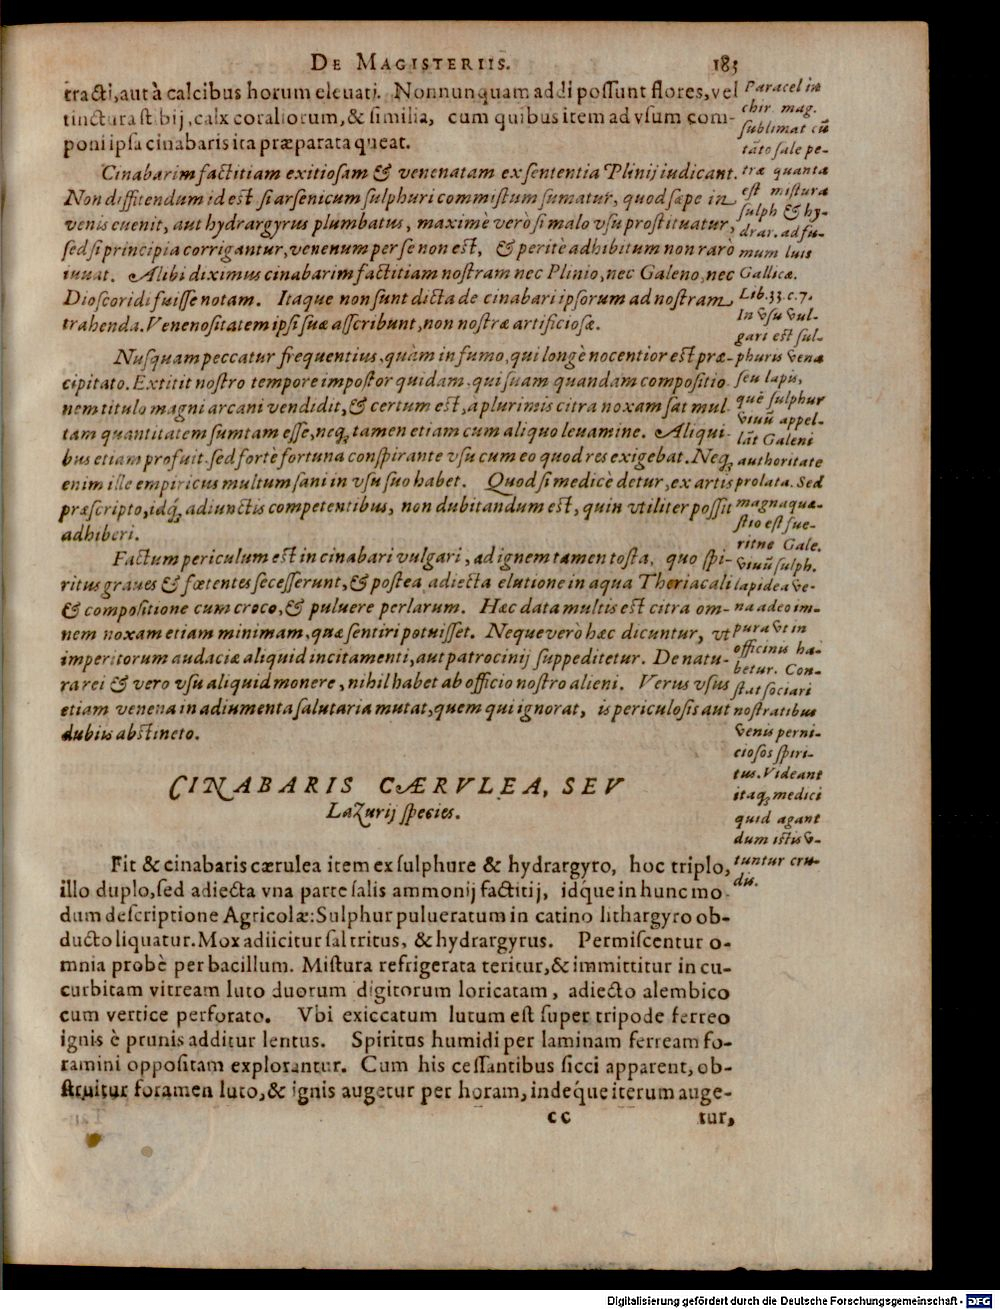 De Magisteriis. 185
tracti, aut à calcibus horum eleuati. Nonnunquam addi possunt flores, vel
tinctura stibij, calx coraliorum, & similia, cum quibus item ad vsum com-
poni ipsa cinabaris ita præparata queat.
Cinabarim factitiam exitiosam & venenatam ex sententia Plinij iudicant.
Non diffitendum id est si arsenicum sulphuri commistum sumatur, quod sæpe in
venis euenit, aut hydrargyrus plumbatus, maximè verò si malo vsu prostituatur,
sed si principia corrigantur, venenum per se non est, & peritè adhibitum non rarò
iuuat. Alibi diximus cinabarim factitiam nostram nec Plinio, nec Galeno, nec
Dioscoridi fuisse notam. Itaque non sunt dicta de cinabari ipsorum ad nostram
trahenda. Venenositatem ipsi suæ asscribunt, non nostræ artificiosæ.
Nusquam peccatur frequentius, quàm in fumo, qui longè nocentior est præ-
cipitato. Extitit nostro tempore impostor quidam, qui suam quandam compositio
nem titulo magni arcani vendidit, & certum est, à plurimis citra noxam sat mul
tam quantitatem sumtam esse, neq; tamen etiam cum aliquo leuamine. Aliqui-
bus etiam profuit, sed fortè fortuna conspirante vsu cum eo quod res exigebat. Neq;
enim ille empiricus multum sani in vsu suo habet. Quod si medicè detur, ex artis
præscripto, idq; adiunctis competentibus, non dubitandum est, quin vtiliter possit
adhiberi.
Factum periculum est in cinabari vulgari, ad ignem tamen tosta, quo spi-
ritus graues & fœtentes secesserunt, & postea adiecta elutione in aqua Theriacali
& compositione cum croco, & puluere perlarum. Hæc data multis est citra om-
nem noxam etiam minimam, quæ sentiri potuisset. Neque verò hæc dicuntur, vt
imperitorum audaciæ aliquid incitamenti, aut patrocinij suppeditetur. De natu-
ra rei & vero vsu aliquid monere, nihil habet ab officio nostro alieni. Verus vsus
etiam venena in adiumenta salutaria mutat, quem qui ignorat, is periculosis aut
dubiis abstineto.
Paracel in
chir mag.
sublimat cū
tāto sale pe-
træ quanta
est mistura
sulph & hy-
drar. ad fu-
mum luis
Gallicæ.
Lib. 33. c. 7.
In vsu vul-
gari est sul-
phuris venæ
seu lapis,
quē sulphur
viuū appel-
lāt Galeni
authoritate
prolata. Sed
magna quæ-
stio est fue-
ritne Gale.
viuū sulph.
lapidea ve-
na adeo im-
pura vt in
officinis ha-
betur. Con-
stat sociari
nostratibus
venis perni-
ciosos spiri-
tus. Videant
itaq; medici
quid agant
dum istis v-
tuntur cru-
dis.
CINABARIS CÆRVLEA, SEV
Lazurij species.
Fit & cinabaris cærulea item ex sulphure & hydrargyro, hoc triplo,
illo duplo, sed adiecta vna parte salis ammonij factitij, idque in hunc mo
dum descriptione Agricolæ: Sulphur pulueratum in catino lithargyro ob-
ducto liquatur. Mox adiicitur sal tritus, & hydrargyrus. Permiscentur o-
mnia probè per bacillum. Mistura refrigerata teritur, & immittitur in cu-
curbitam vitream luto duorum digitorum loricatam, adiecto alembico
cum vertice perforato. Vbi exiccatum lutum est super tripode ferreo
ignis è prunis additur lentus. Spiritus humidi per laminam ferream fo-
ramini oppositam explorantur. Cum his cessantibus sicci apparent, ob-
struitur foramen luto, & ignis augetur per horam, indeque iterum auge-
cc tur,
Digitalisierung gefördert durch die Deutsche Forschungsgemeinschaft - DFG